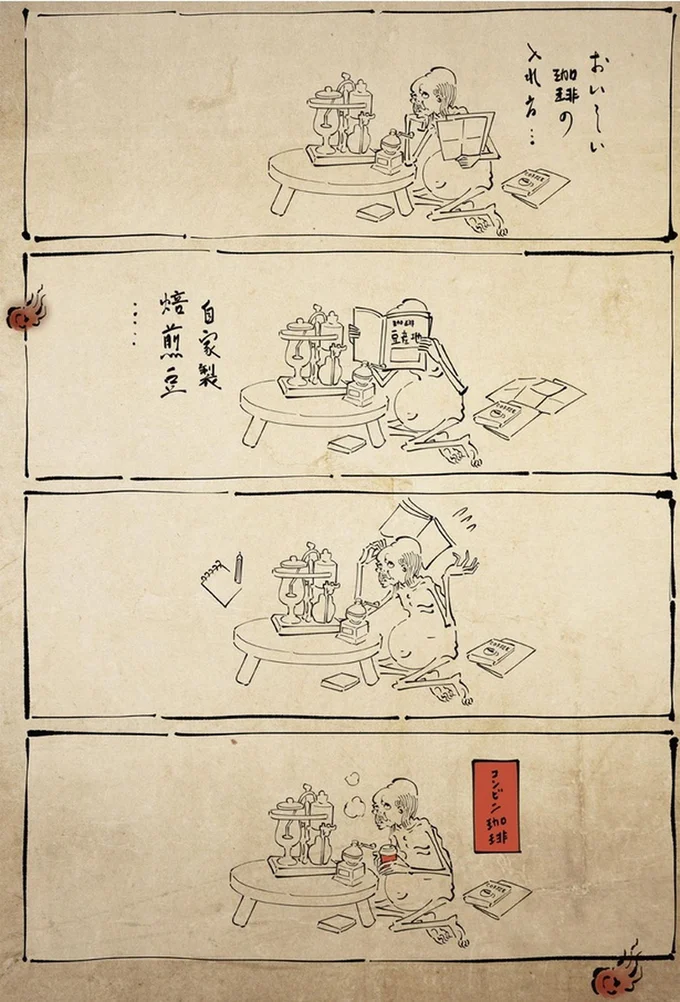 おいしい
珈琲の
入れ方…
COFFEE
自家製
焙煎豆
‥‥
珈琲
豆産地
COFFEE
COFFEE
コンビニ珈琲
COFFEE